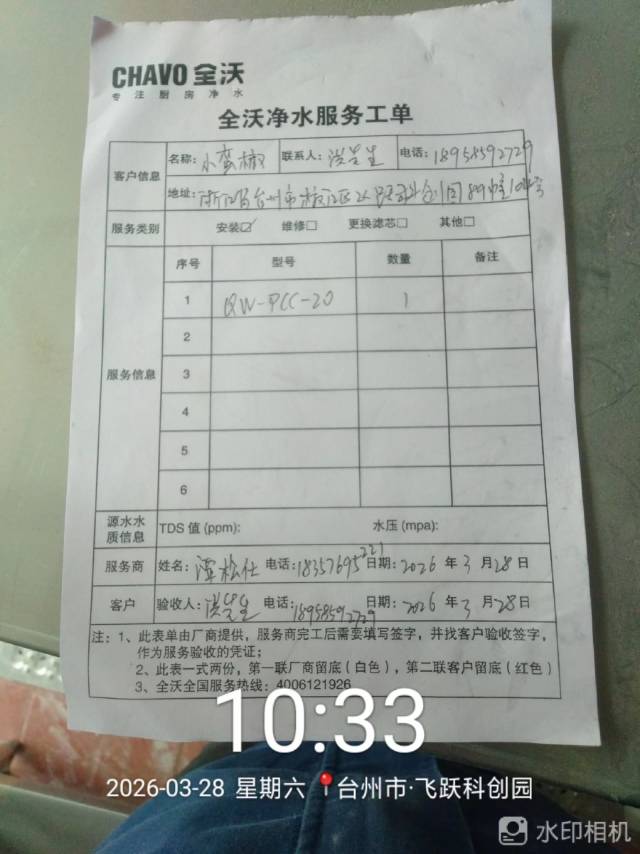 CHAVO 全沃
专注厨房净水
全沃净水服务工单
客户信息
名称：小蛮椒 联系人：洪先生 电话：18958592729
地址：浙江省台州市椒江区飞跃科创园89幢104号
服务类别 安装☑ 维修□ 更换滤芯□ 其他□
服务信息
序号 型号 数量 备注
1 QW-PCC-20 1
2
3
4
5
6
源水水质信息 TDS 值 (ppm): 水压 (mpa):
服务商 姓名：潭松仕 电话：18357695221 日期：2026 年 3 月 28 日
客户 验收人：洪先生 电话：18958592729 日期：2026 年 3 月 28 日
注：1、此表单由厂商提供，服务商完工后需要填写签字，并找客户验收签字，
作为服务验收的凭证；
2、此表一式两份，第一联厂商留底（白色），第二联客户留底（红色）
3、全沃全国服务热线：4006121926
10:33
2026-03-28 星期六 台州市·飞跃科创园
水印相机